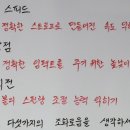 스피드
정확한 스트로크로 만들어진 속도 익히기
점
정확한 임팩트를 주기 위한 높낮이
회전
볼의 스핀량 조절 능력 익히기
다섯가지의 조화로움을 생각하